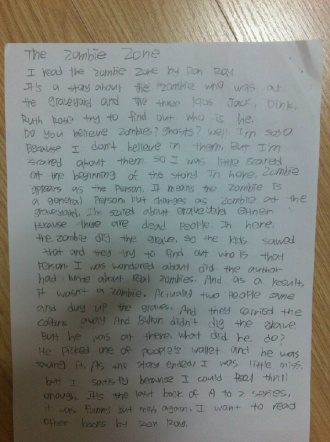 The Zombie Zone
I read the zombie zone by Ron Roy
It's a story about the zombie who was at
the graveyard and the three kids Jack, Dink,
Ruth Rose try to find out who is he.
Do you believe zombies? ghosts? Well I'm soso
Because I don't believe in them. But I'm
scared about them. so I was little scared
at the beginning of the story. In here, zombie
appears as the person. It means the zombie is
a general person but changes as zombie at the
graveyard. I'm scared about graveyard either
because there are dead people. In here.
the zombie dig the grave. so the kids sawed
that and they try to find out who is that
person. I was wondered about did the author
had wrote about real zombies. And as a result,
it wasn't a zombie. Actually two people came
and dug up the graves. And they carried the
coffins away. And didn't dig the grave.
But he was at there. What did he do?
He picked one of people's wallet and he was
it. As the story ended I was little miss,
but I satisfy because I could feel thrill
enough. It's the last book of A to Z series,
it was funny but now again. I want to read
other books by Ron Roy.